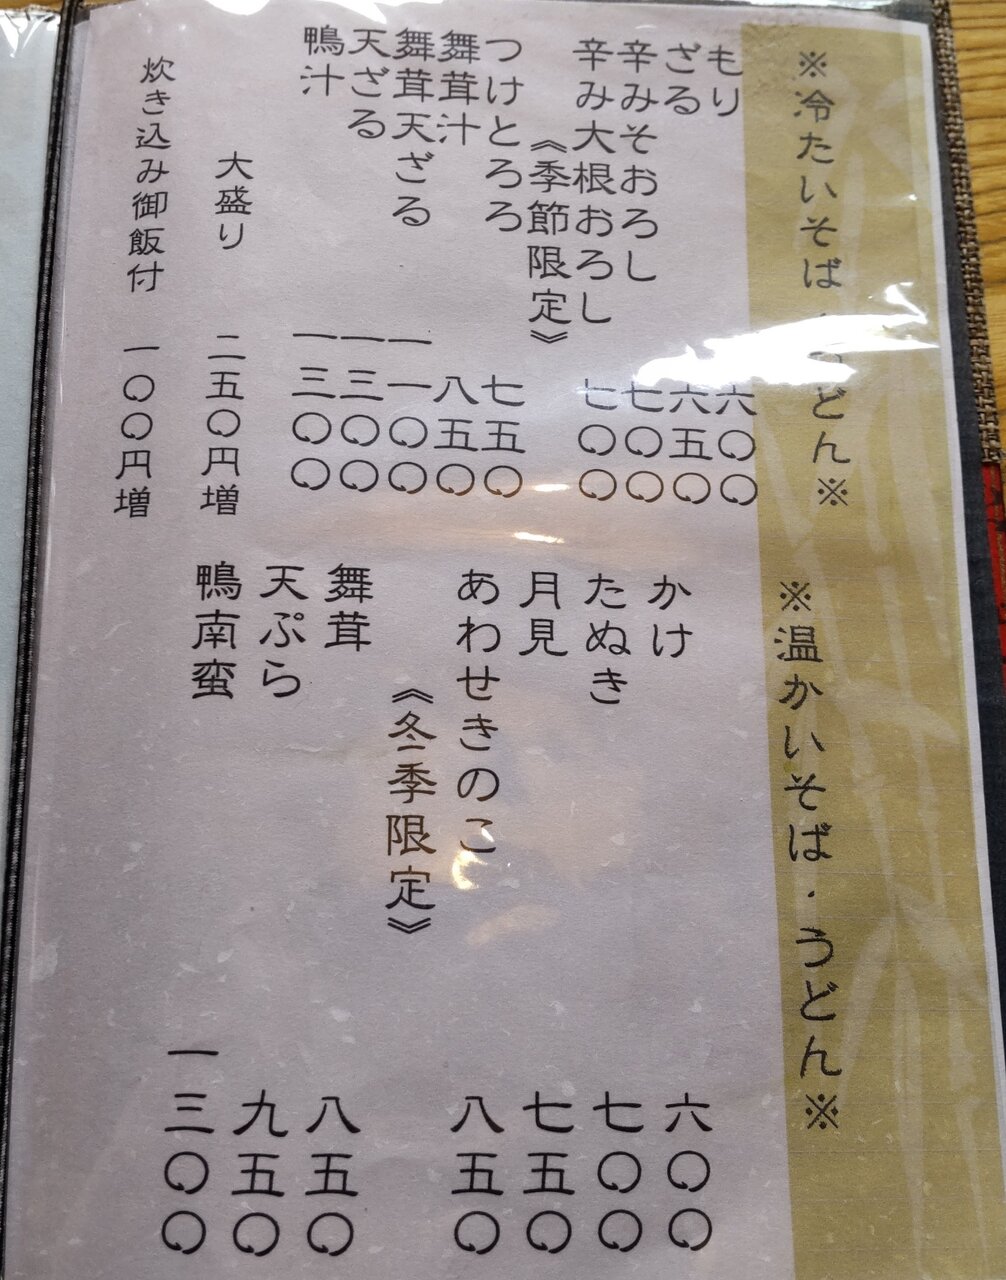 ※冷たいそば・うどん※
もり 六〇〇
ざる 六五〇
辛みそおろし 七〇〇
辛み大根おろし 七〇〇
《季節限定》
つけとろろ 七五〇
舞茸汁 八五〇
舞茸天ざる 一一〇〇
天ざる 一三〇〇
鴨汁 一三〇〇
大盛り 二五〇円増
炊き込み御飯付 一〇〇円増
※温かいそば・うどん※
かけ 六〇〇
たぬき 七〇〇
月見 七五〇
あわせきのこ 八五〇
《冬季限定》
舞茸 八五〇
天ぷら 九五〇
鴨南蛮 一三〇〇